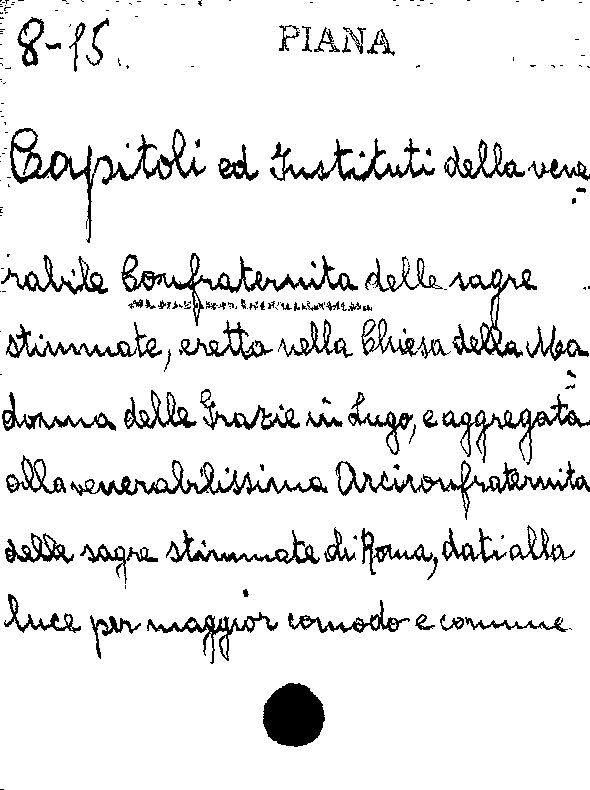 8-15.
PIANA
Capitoli ed Instituti della vene=
rabile Confraternita delle sagre
stimmate, eretta nella Chiesa della Ma=
donna delle Grazie in Lugo, e aggregata
alla venerabilissima Arciconfraternita
delle sagre stimmate di Roma, dati alla
luce per maggior comodo e comune